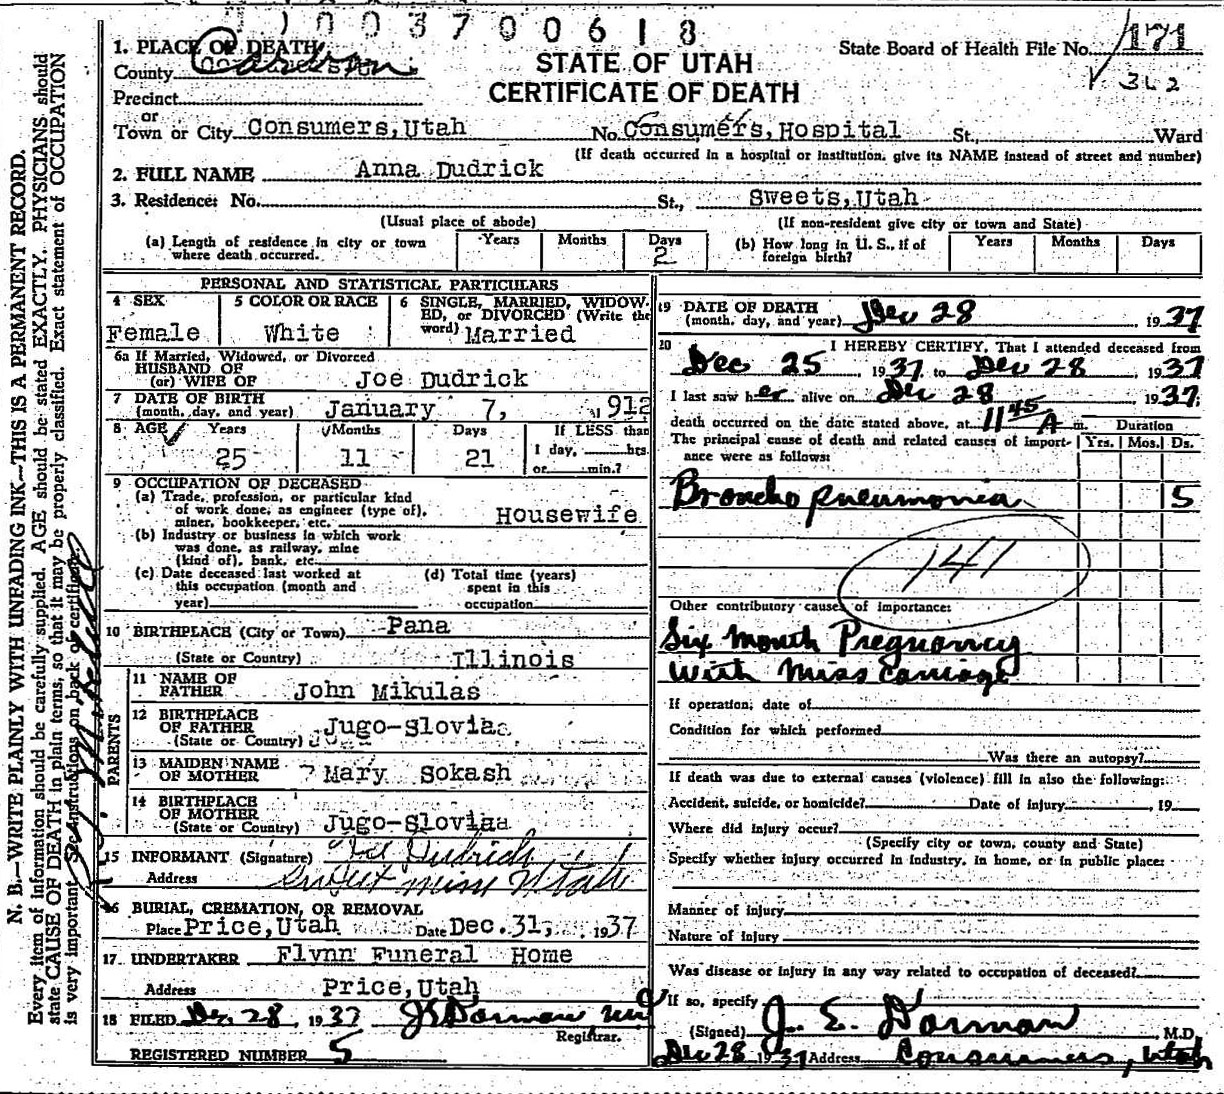 1003700618
1. PLACE OF DEATH
County Carbon
Precinct
or
Town or City Consumers, Utah No. Consumers, Hospital St., Ward
(If death occurred in a hospital or institution, give its NAME instead of street and number)
STATE OF UTAH
CERTIFICATE OF DEATH
State Board of Health File No. 171
362
2. FULL NAME Anna Dudrick
3. Residence: No. St., Sweets, Utah
(Usual place of abode) (If non-resident give city or town and State)
(a) Length of residence in city or town where death occurred. Years Months Days 2
(b) How long in U. S., if of foreign birth? Years Months Days
PERSONAL AND STATISTICAL PARTICULARS
4 SEX Female
5 COLOR OR RACE White
6 SINGLE, MARRIED, WIDOWED, or DIVORCED (Write the word) Married
6a If Married, Widowed, or Divorced
HUSBAND OF
(or) WIFE OF Joe Dudrick
7 DATE OF BIRTH
(month, day, and year) January 7, 1912
8 AGE Years Months Days If LESS than
25 11 21 1 day, hrs.
or min.?
9 OCCUPATION OF DECEASED
(a) Trade, profession, or particular kind
of work done, as engineer (type of),
miner, bookkeeper, etc. Housewife
(b) Industry or business in which work
was done, as railway, mine
(kind of), bank, etc.
(c) Date deceased last worked at
this occupation (month and
year)
(d) Total time (years)
spent in this
occupation
10 BIRTHPLACE (City or Town) Pana
(State or Country) Illinois
PARENTS
11 NAME OF
FATHER John Mikulas
12 BIRTHPLACE
OF FATHER
(State or Country) Jugo-Slovia
13 MAIDEN NAME
OF MOTHER ? Mary Sokash
14 BIRTHPLACE
OF MOTHER
(State or Country) Jugo-Slovia
15 INFORMANT (Signature) Joe Dudrick
Address Sweet mine Utah
16 BURIAL, CREMATION, OR REMOVAL
Place Price, Utah Date Dec. 31, 1937
17 UNDERTAKER Flynn Funeral Home
Address Price, Utah
18 FILED Dec 28, 1937 J E Dorman MD
Registrar.
REGISTERED NUMBER 5
19 DATE OF DEATH
(month, day, and year) Dec 28 1937
20 I HEREBY CERTIFY, That I attended deceased from
Dec 25, 1937 to Dec 28, 1937
I last saw her alive on Dec 28 1937
death occurred on the date stated above, at 11 45 A m. Duration
The principal cause of death and related causes of importance were as follows: Yrs. Mos. Ds.
Broncho pneumonia 5
141
Other contributory causes of importance:
Six Month Pregnancy
With Miss carriage
If operation, date of
Condition for which performed
Was there an autopsy?
If death was due to external causes (violence) fill in also the following:
Accident, suicide, or homicide? Date of injury , 19
Where did injury occur?
(Specify city or town, county and State)
Specify whether injury occurred in industry, in home, or in public place:
Manner of injury
Nature of injury
Was disease or injury in any way related to occupation of deceased?
If so, specify
(Signed) J. E. Dorman M.D.
Dec 28 1937 Address Consumers, Utah
N. B.—WRITE PLAINLY WITH UNFADING INK—THIS IS A PERMANENT RECORD.
Every item of information should be carefully supplied. AGE should be stated EXACTLY. PHYSICIANS should
state CAUSE OF DEATH in plain terms, so that it may be properly classified. Exact statement of OCCUPATION
is very important. See instructions on back of certificate.